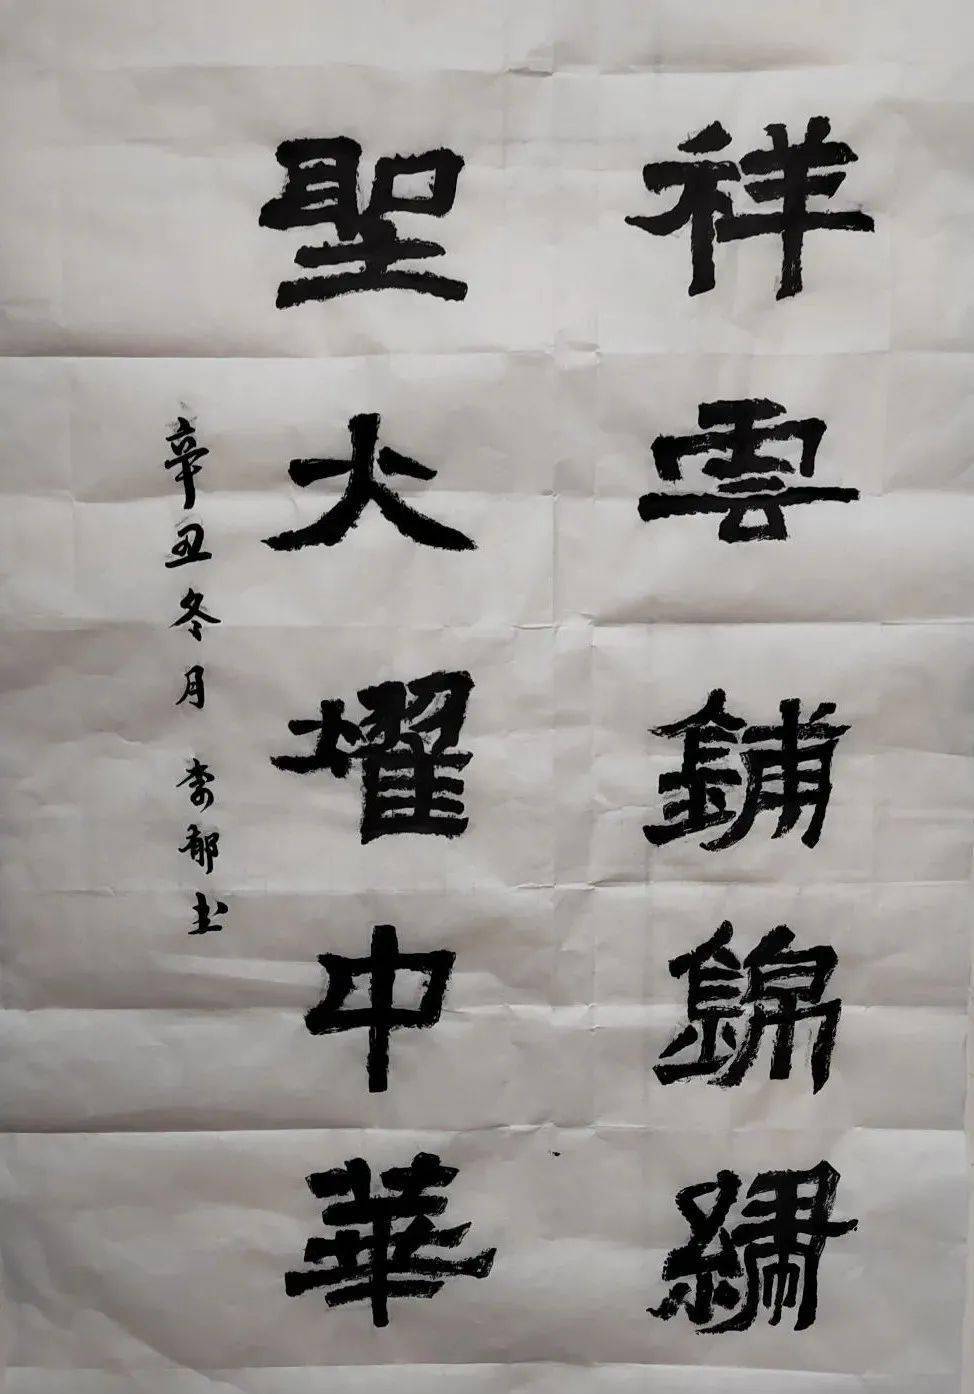 祥雲鋪錦繡
聖火耀中華
辛丑冬月 李郁书